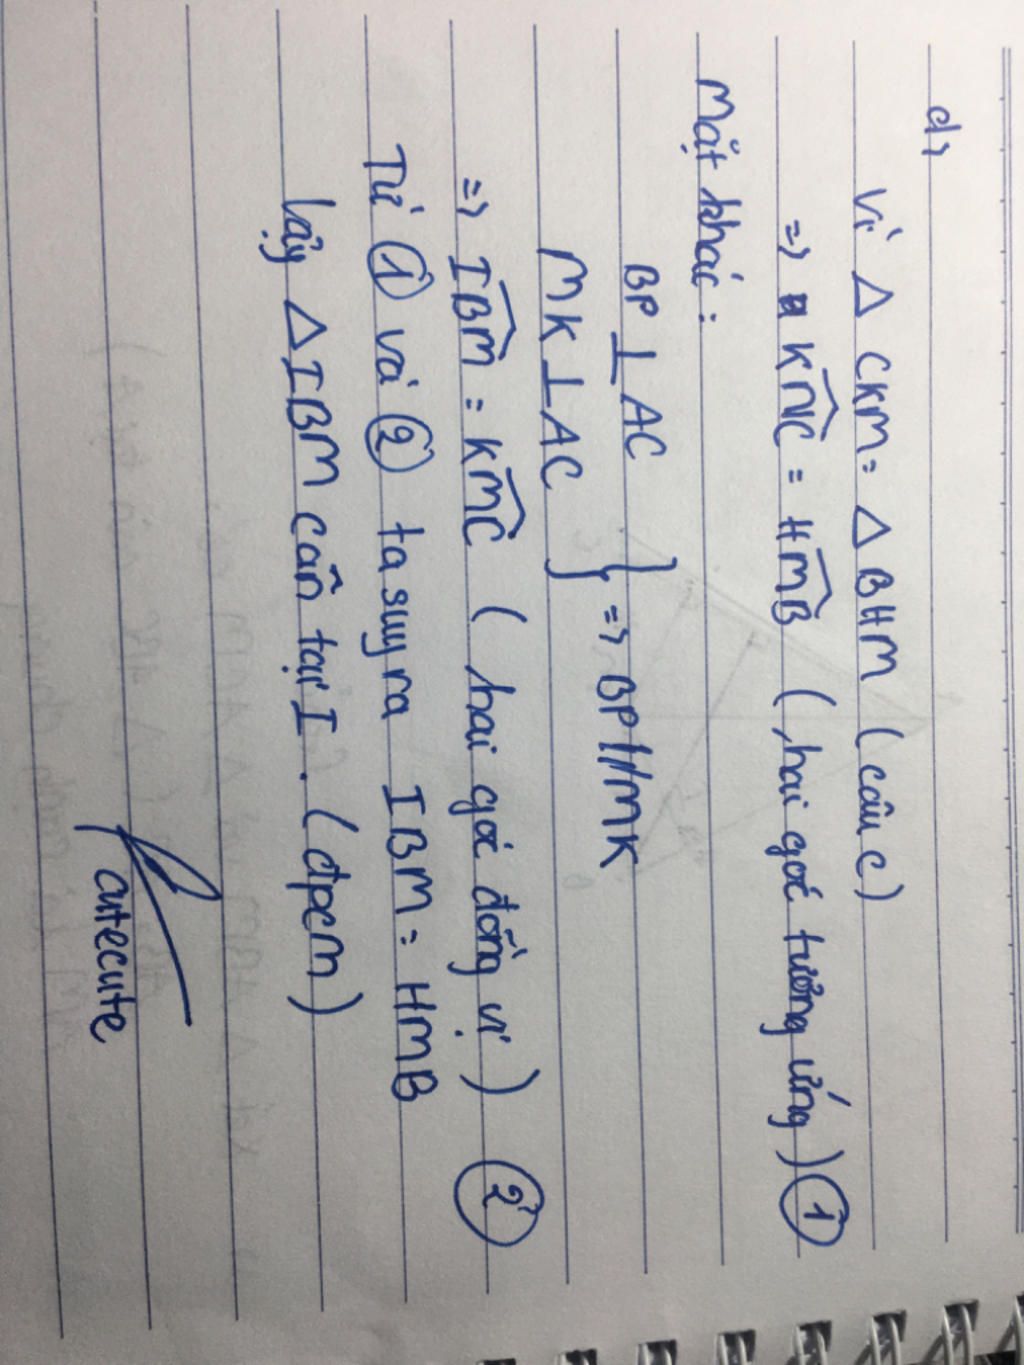 d,
Vì △ CKM = △ BHM (câu c)
=> KMC = HMB (hai góc tương ứng) ①
Mặt khác :
BP ⊥ AC
MK ⊥ AC } => BP // MK
=> IBM = KMC ( hai góc đồng vị ) ②
Từ ① và ② ta suy ra IBM = HMB
Vậy △ IBM cân tại I. (đpcm)
cutecute